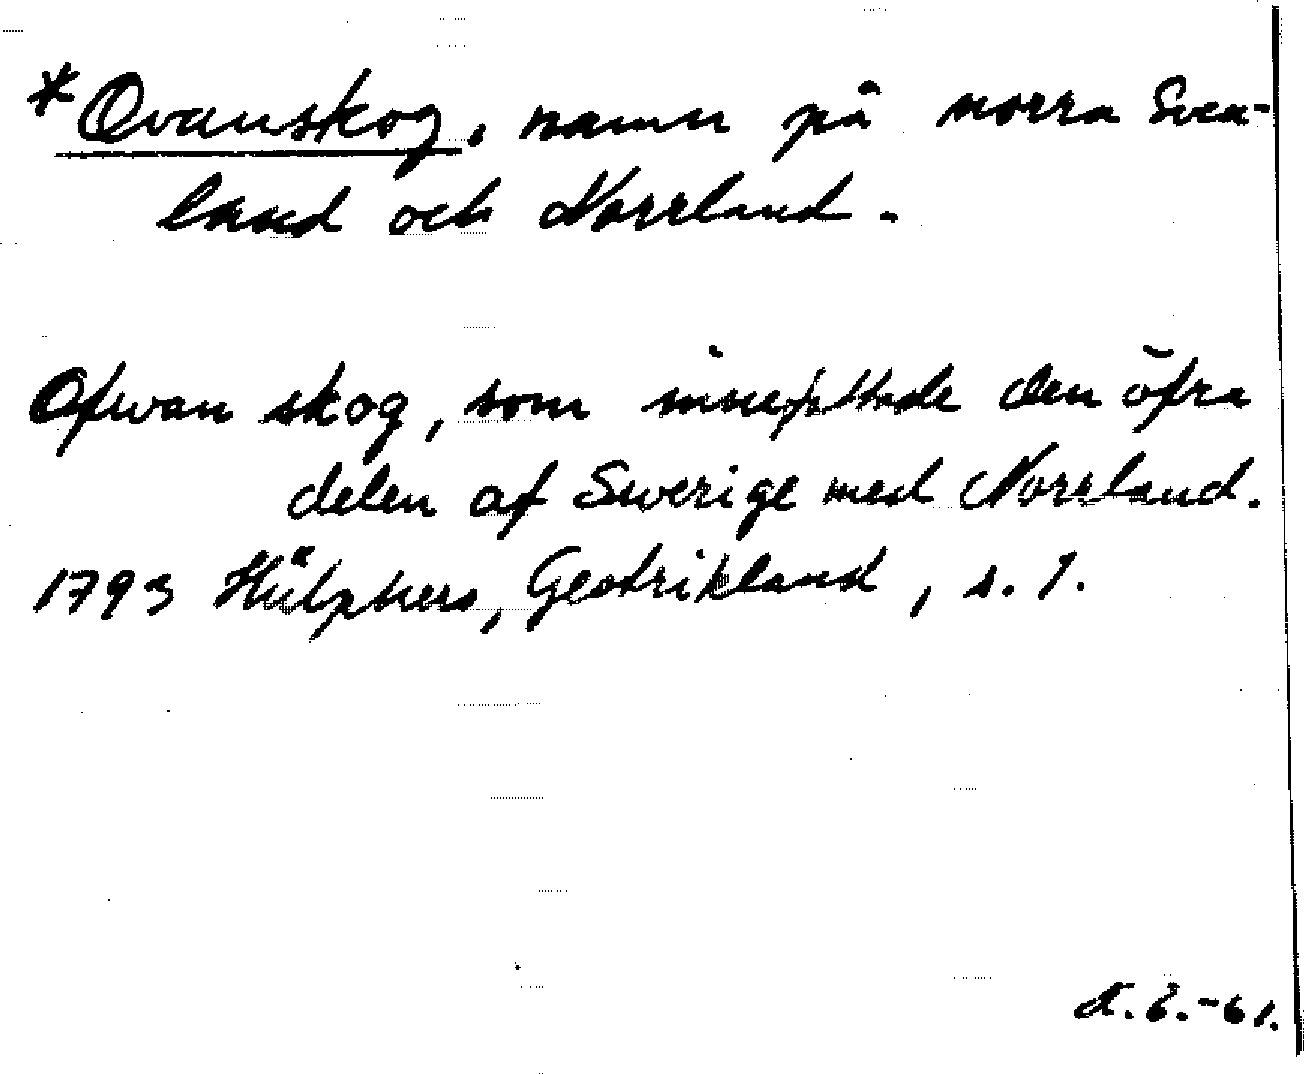 *Ovanskog, namn på norra Svea-
land och Norrland.
Ofwan skog, som innefattade den öfra
delen af Swerige med Norrland.
1793 Hülphers, Gestrikland, s. 1.
-61.